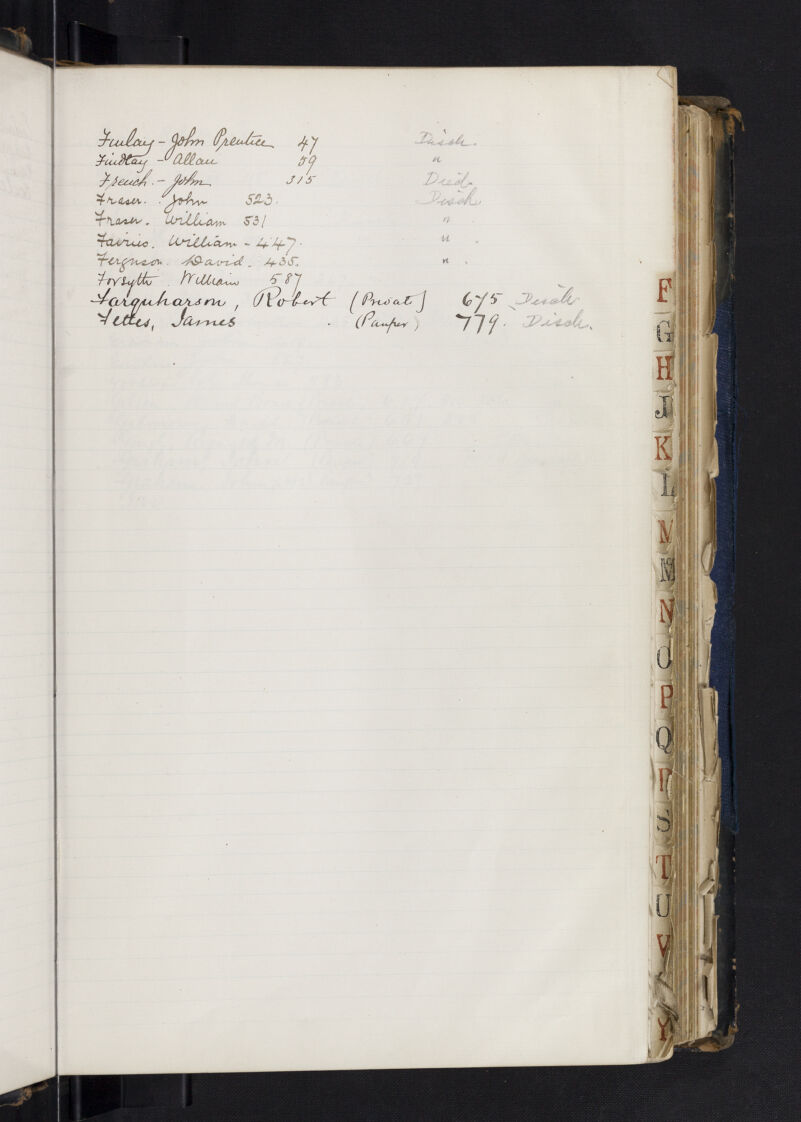 Finlay - John Prentice 47 Disch.
Findlay - Allan 59 "
French. - John 315 Died.
Fraser. John 523. Disch
Fraser. William 531 " .
Fairies. William - 447. " .
Ferguson. David. 435. " .
Forsyth. William 587
Farquharson, Robert (Private) 675 Disch
Fettes, James (Pauper) 779. Disch.
F
G
H
J
K
L
M
M
N
O
P
Q
R
S
T
U
V
Y